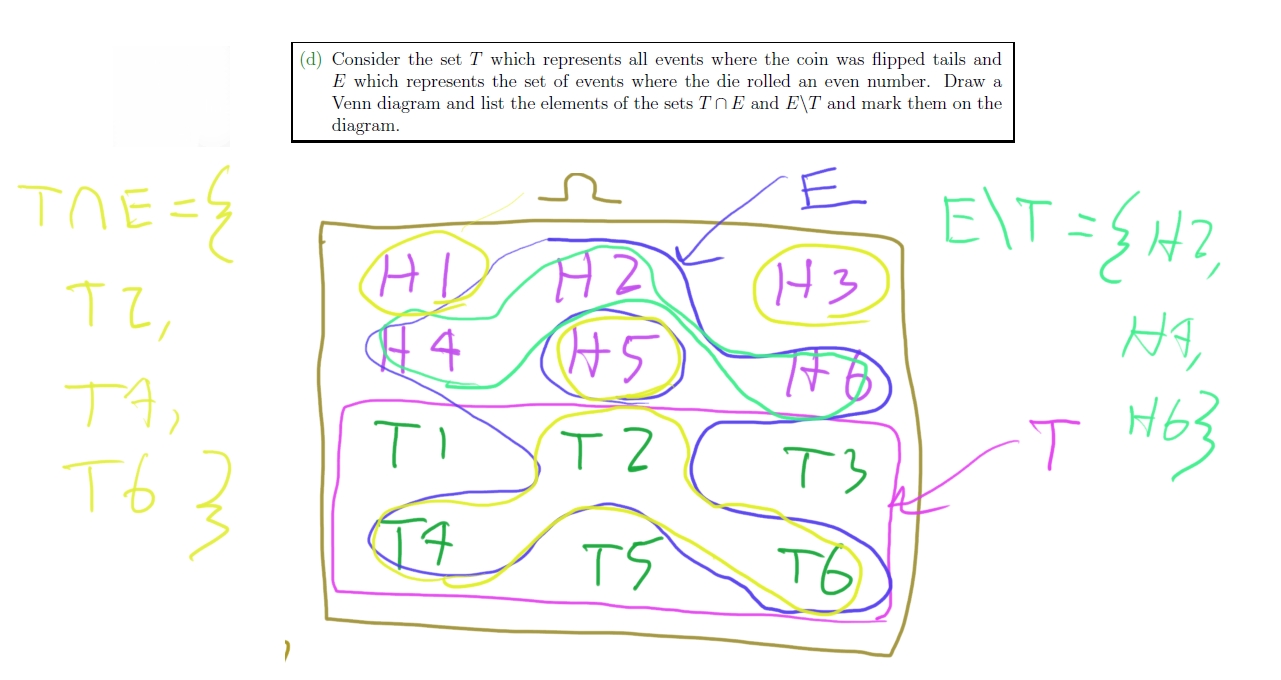 (d) Consider the set T which represents all events where the coin was flipped tails and
E which represents the set of events where the die rolled an even number. Draw a
Venn diagram and list the elements of the sets T ∩ E and E\T and mark them on the
diagram.
Ω
E
T∩E = {
T2,
T4,
T6 }
H1 H2 H3
H4 H5 H6
T1 T2 T3
T4 T5 T6
E\T = {H2,
H4,
H6}
T